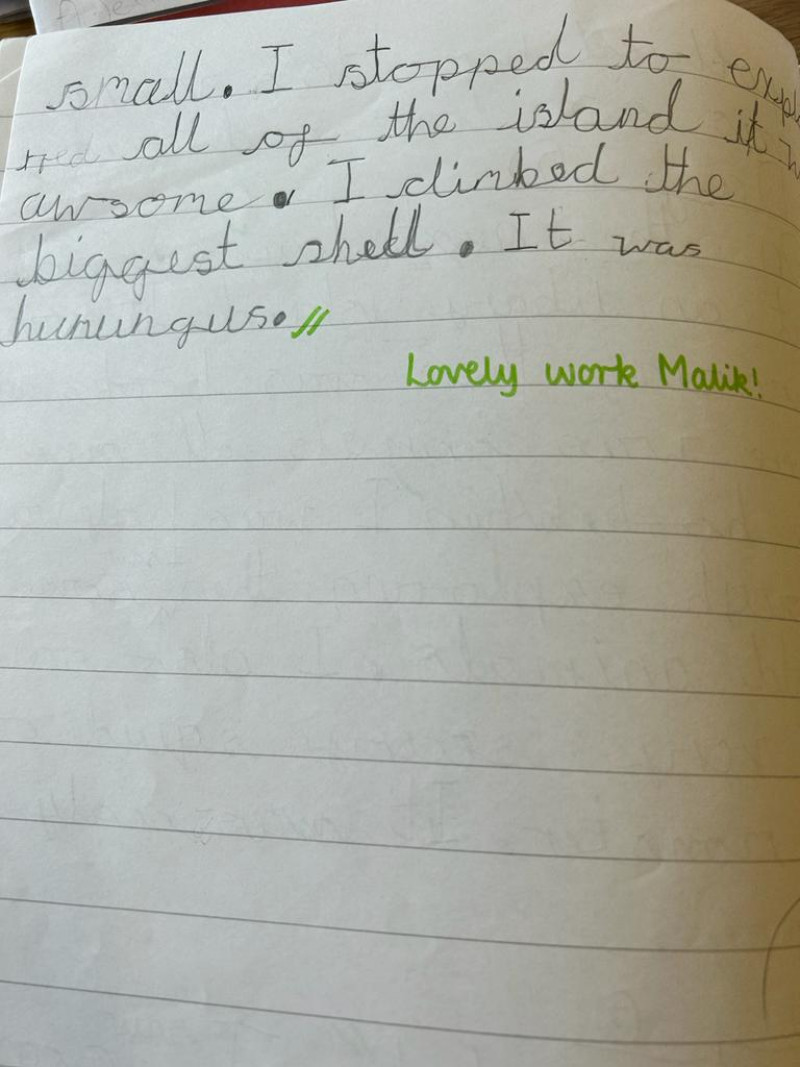 small. I stopped to expl
all of the island it w
awsome. I climbed the
biggest shell. It was
hunungus.
Lovely work Malik!